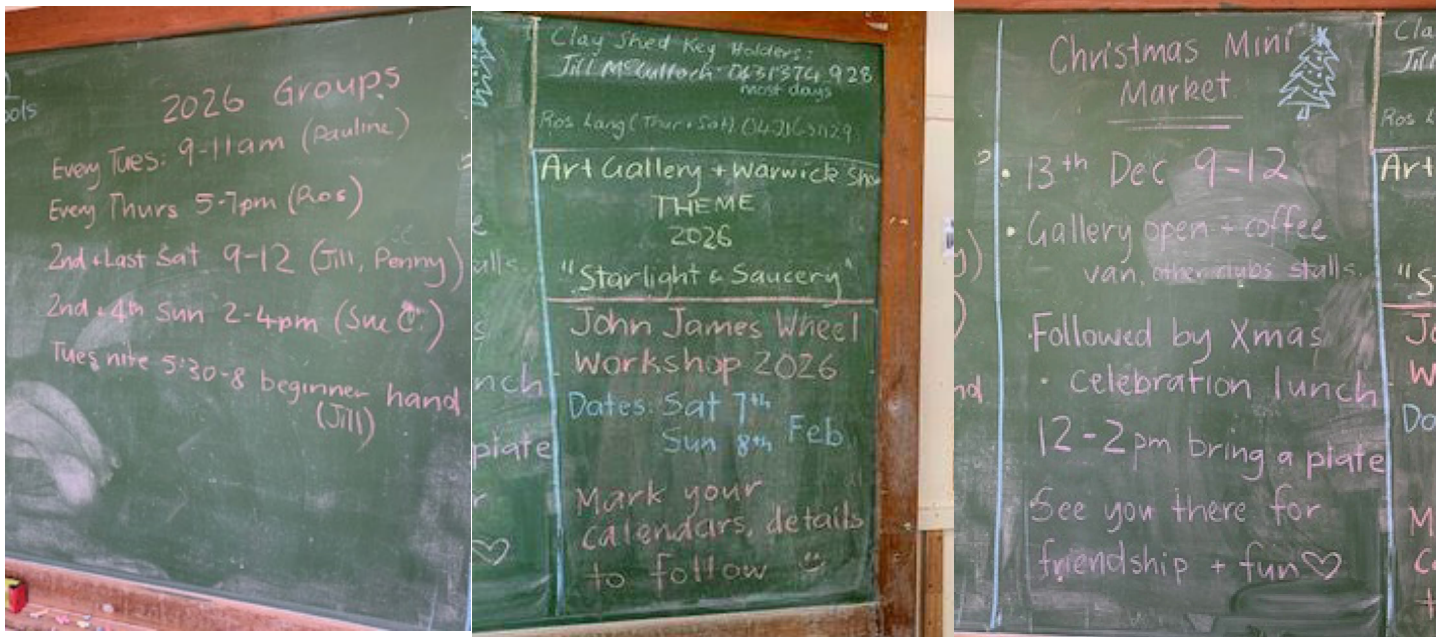 ools
2026 Groups
Every Tues: 9-11am (Pauline)
Every Thurs 5-7pm (Ros)
2nd + Last Sat 9-12 (Jill, Penny)
2nd + 4th Sun 2-4pm (Sue C.)
Tues nite 5:30-8 beginner hand
(Jill)
Clay Shed Key Holders:
Jill McCulloch 0431374 928
most days
Ros Lang (Thur + Sat)
Art Gallery + Warwick Sho
THEME
2026
"Starlight & Saucery"
John James Wheel
Workshop 2026
Dates: Sat 7th
Sun 8th Feb
Mark your
calendars, details
to follow
alls.
nch
plate
Christmas Mini
Market
• 13th Dec 9-12
• Gallery open + coffee
van, other clubs stalls.
Followed by Xmas
• celebration lunch
12-2pm bring a plate
See you there for
friendship + fun ♡
Cla
Jill
Ros L
Art
"S
Jo
W
Do
M
c
t